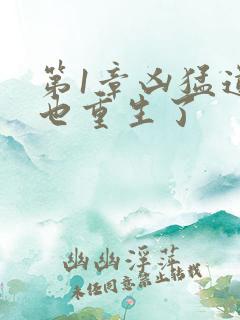 第1章凶猛道
也重生了
幽幽浮萍
未经同意禁止转载